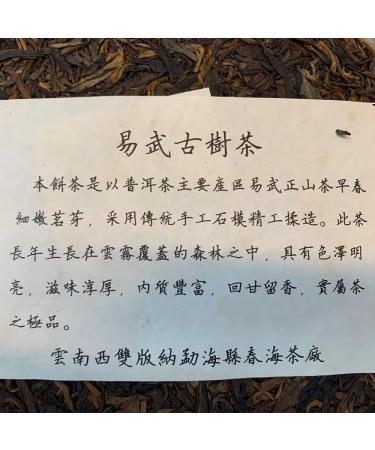 易武古樹茶
本餅茶是以普洱茶主要產區易武正山茶早春
細嫩茗芽，采用傳統手工石模精工揉造。此茶
長年生長在雲霧覆蓋的森林之中，具有色澤明
亮，滋味淳厚，內質豐富，回甘留香，實屬茶
之極品。
雲南西雙版納勐海縣春海茶廠